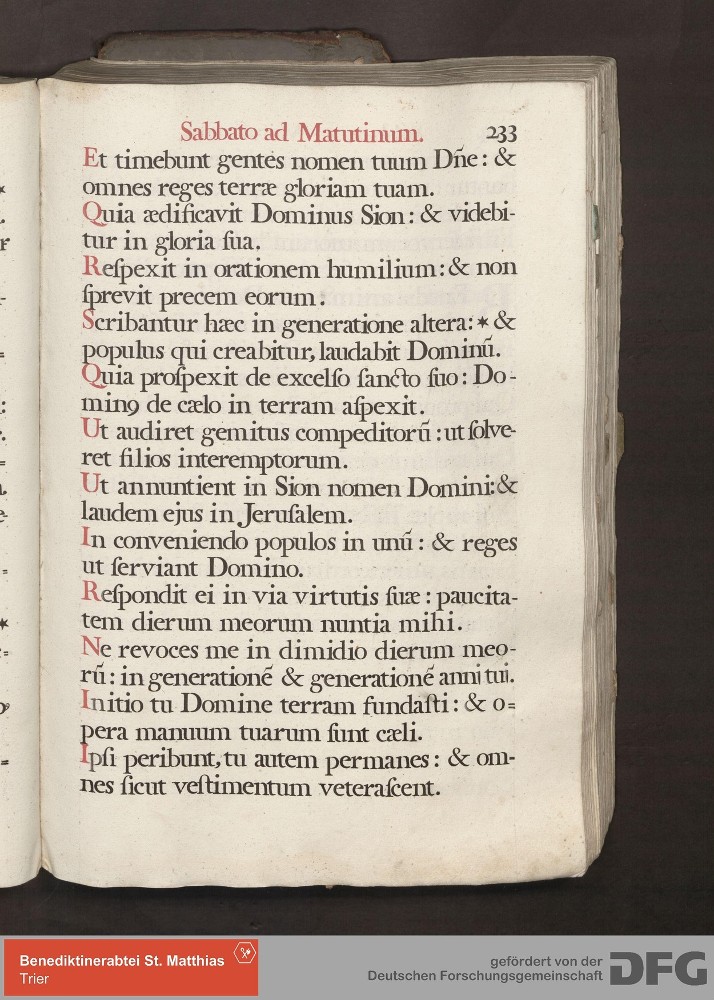 Sabbato ad Matutinum. 233
Et timebunt gentes nomen tuum Dñe: &
omnes reges terræ gloriam tuam.
Quia ædificavit Dominus Sion: & videbi-
tur in gloria ſua.
Reſpexit in orationem humilium: & non
ſprevit precem eorum:
Scribantur hæc in generatione altera: * &
populus qui creabitur, laudabit Dominũ.
Quia proſpexit de excelſo ſancto ſuo: Do-
minꝰ de cælo in terram aſpexit.
Ut audiret gemitus compeditorũ: ut ſolve-
ret filios interemptorum.
Ut annuntient in Sion nomen Domini: &
laudem ejus in Jeruſalem.
In conveniendo populos in unũ: & reges
ut ſerviant Domino.
Reſpondit ei in via virtutis ſuæ: paucita-
tem dierum meorum nuntia mihi.
Ne revoces me in dimidio dierum meo-
rũ: in generationẽ & generationẽ anni tui.
Initio tu Domine terram fundaſti: & o=
pera manuum tuarum ſunt cæli.
Ipſi peribunt, tu autem permanes: & om-
nes ſicut veſtimentum veteraſcent.
Benediktinerabtei St. Matthias
Trier
gefördert von der
Deutschen Forschungsgemeinschaft
DFG